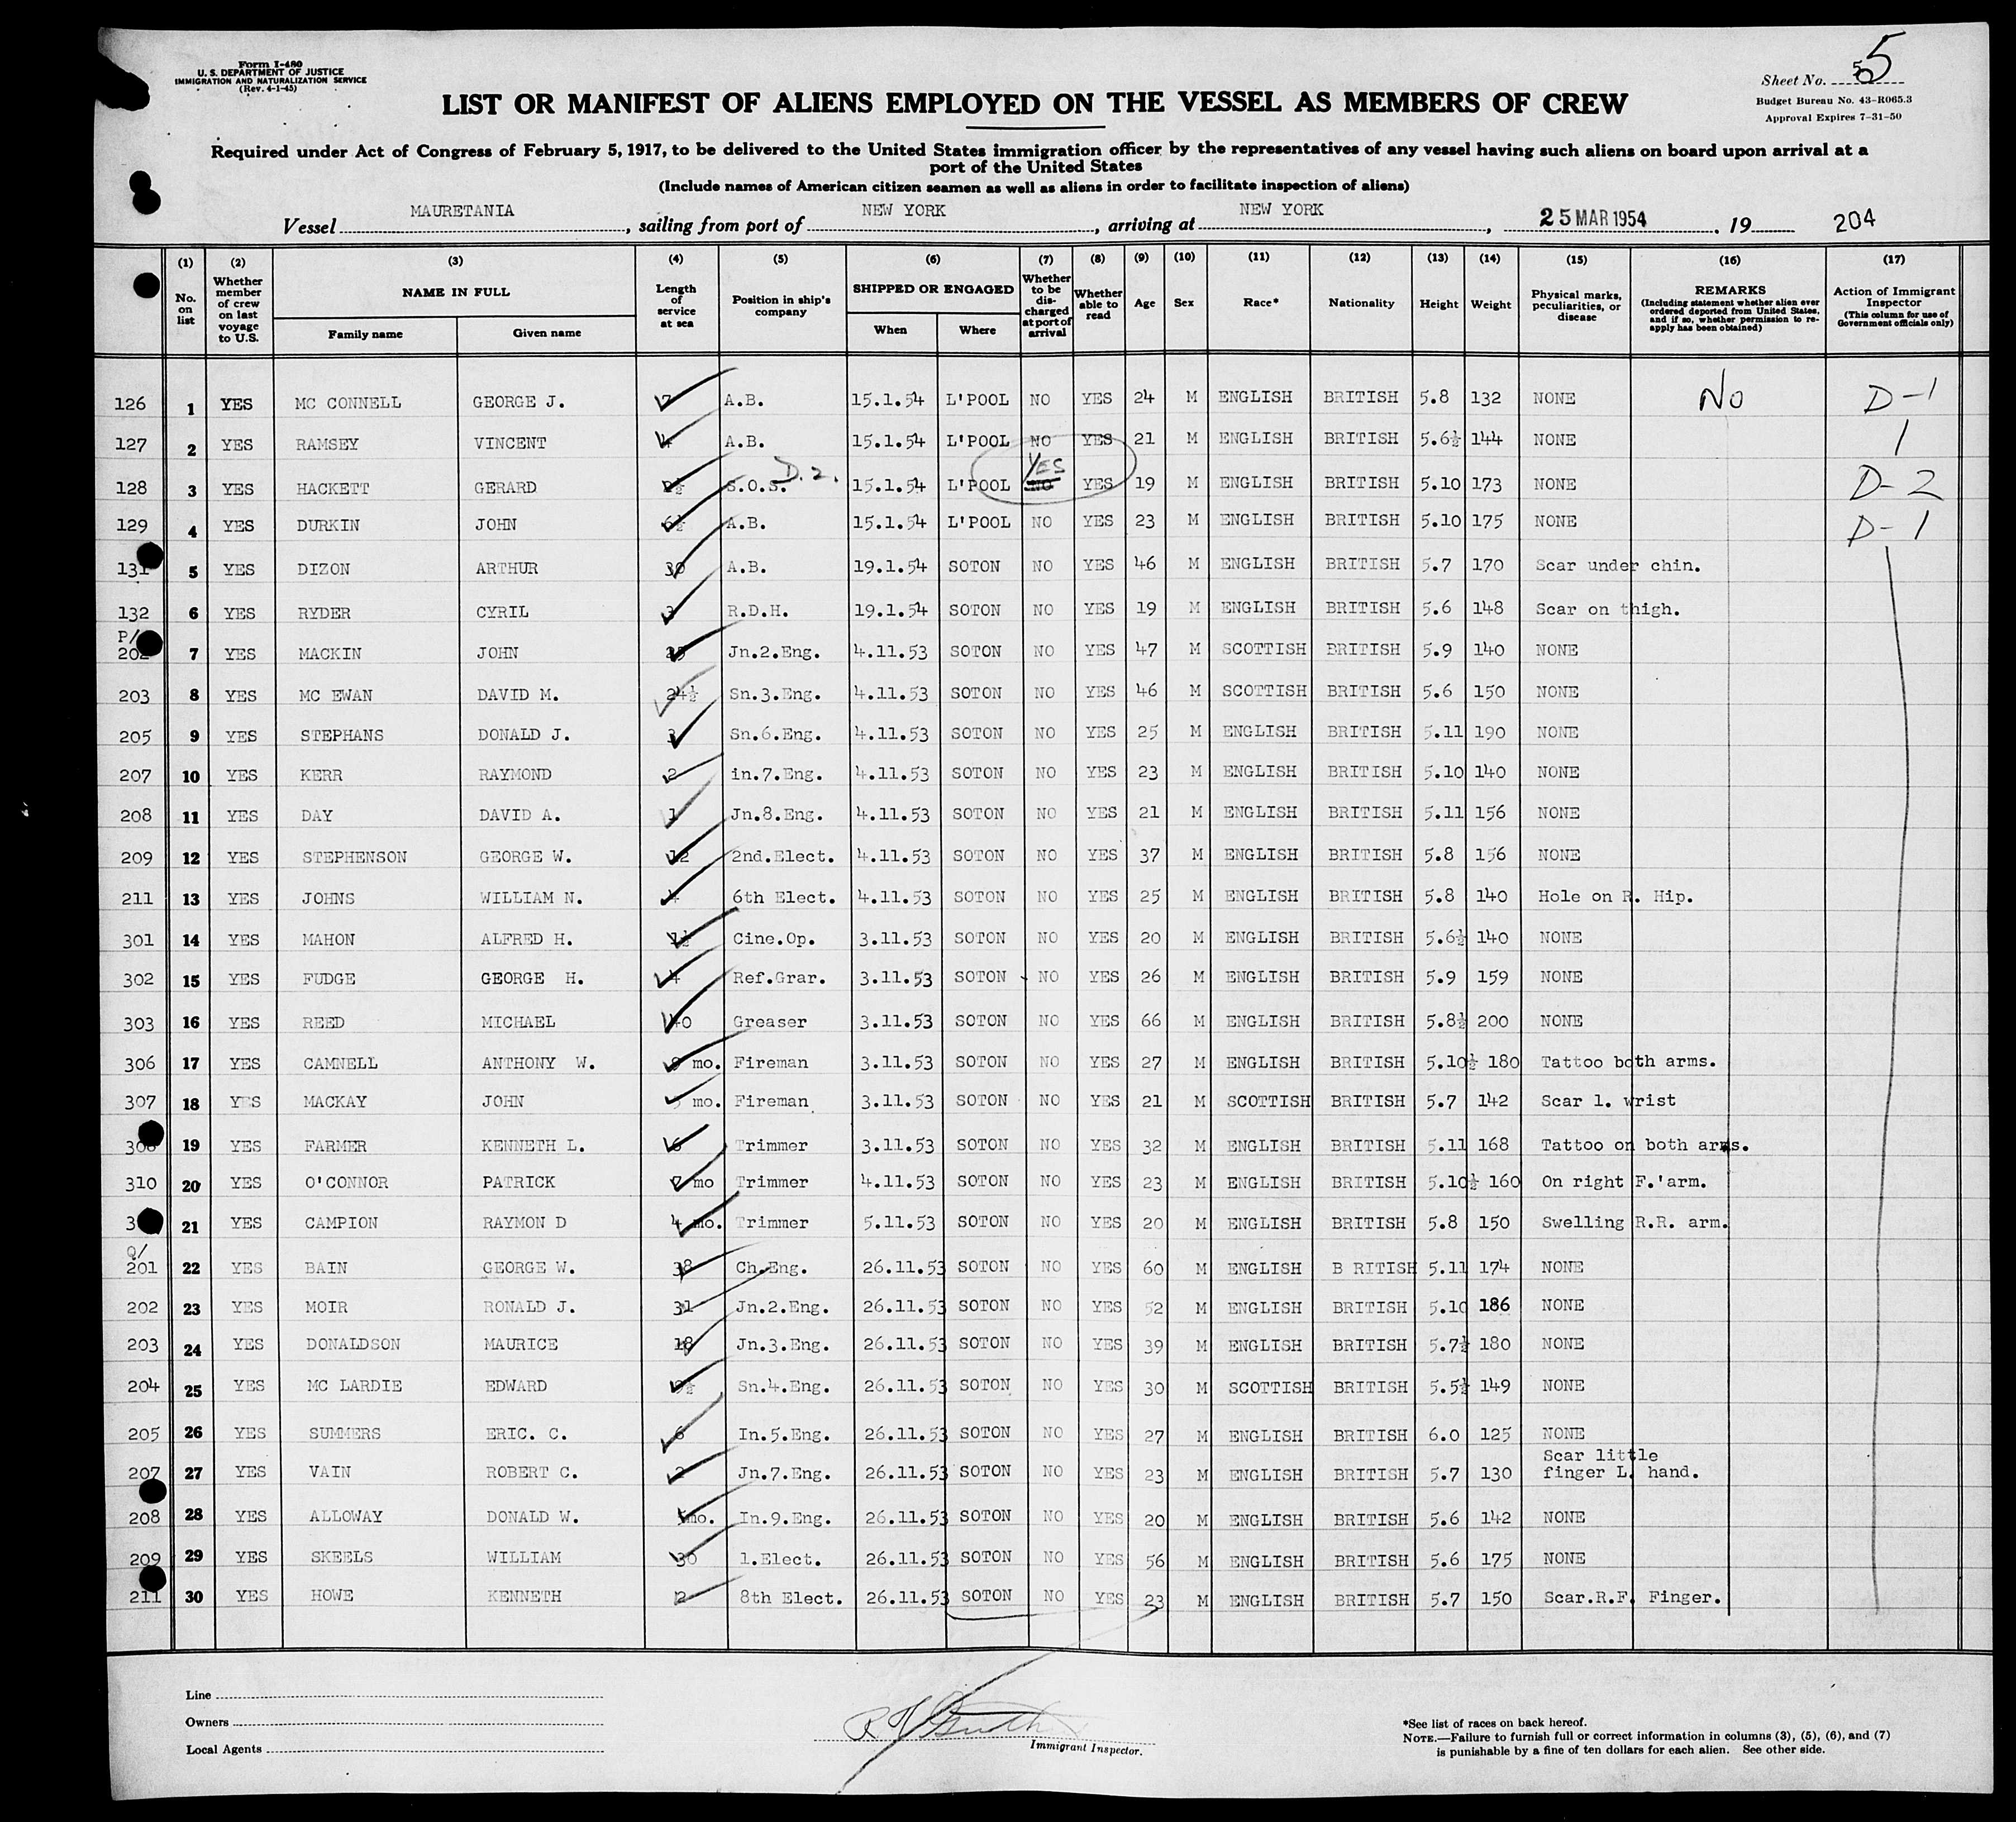 Form I-480
U. S. DEPARTMENT OF JUSTICE
IMMIGRATION AND NATURALIZATION SERVICE
(Rev. 4-1-45)
Sheet No. 5 5
Budget Bureau No. 43-R065.3
Approval Expires 7-31-50
LIST OR MANIFEST OF ALIENS EMPLOYED ON THE VESSEL AS MEMBERS OF CREW
Required under Act of Congress of February 5, 1917, to be delivered to the United States immigration officer by the representatives of any vessel having such aliens on board upon arrival at a
port of the United States
(Include names of American citizen seamen as well as aliens in order to facilitate inspection of aliens)
Vessel MAURETANIA, sailing from port of NEW YORK, arriving at NEW YORK, 25 MAR 1954, 19 204
(1) No. on list (2) Whether member of crew on last voyage to U.S. (3) NAME IN FULL Family name Given name (4) Length of service at sea (5) Position in ship's company (6) SHIPPED OR ENGAGED When Where (7) Whether to be discharged at port of arrival (8) Whether able to read (9) Age (10) Sex (11) Race* (12) Nationality (13) Height (14) Weight (15) Physical marks, peculiarities, or disease (16) REMARKS (Including statement whether alien ever ordered deported from United States, and if so, whether permission to reapply has been obtained) (17) Action of Immigrant Inspector (This column for use of Government officials only)
126 1 YES MC CONNELL GEORGE J. 7 A.B. 15.1.54 L'POOL NO YES 24 M ENGLISH BRITISH 5.8 132 NONE No D-1
127 2 YES RAMSEY VINCENT 4 A.B. 15.1.54 L'POOL NO YES 21 M ENGLISH BRITISH 5.6½ 144 NONE 1
D.2. YES
128 3 YES HACKETT GERARD 2½ S.O.S. 15.1.54 L'POOL NO YES 19 M ENGLISH BRITISH 5.10 173 NONE D-2
129 4 YES DURKIN JOHN 6½ A.B. 15.1.54 L'POOL NO YES 23 M ENGLISH BRITISH 5.10 175 NONE D-1
131 5 YES DIZON ARTHUR 30 A.B. 19.1.54 SOTON NO YES 46 M ENGLISH BRITISH 5.7 170 Scar under chin.
132 6 YES RYDER CYRIL 3 R.D.H. 19.1.54 SOTON NO YES 19 M ENGLISH BRITISH 5.6 148 Scar on thigh.
P/
202 7 YES MACKIN JOHN Jn.2.Eng. 4.11.53 SOTON NO YES 47 M SCOTTISH BRITISH 5.9 140 NONE
203 8 YES MC EWAN DAVID M. 24½ Sn.3.Eng. 4.11.53 SOTON NO YES 46 M SCOTTISH BRITISH 5.6 150 NONE
205 9 YES STEPHANS DONALD J. 3 Sn.6.Eng. 4.11.53 SOTON NO YES 25 M ENGLISH BRITISH 5.11 190 NONE
207 10 YES KERR RAYMOND 2 in.7.Eng. 4.11.53 SOTON NO YES 23 M ENGLISH BRITISH 5.10 140 NONE
208 11 YES DAY DAVID A. 1 Jn.8.Eng. 4.11.53 SOTON NO YES 21 M ENGLISH BRITISH 5.11 156 NONE
209 12 YES STEPHENSON GEORGE W. 12 2nd.Elect. 4.11.53 SOTON NO YES 37 M ENGLISH BRITISH 5.8 156 NONE
211 13 YES JOHNS WILLIAM N. 4 6th Elect. 4.11.53 SOTON NO YES 25 M ENGLISH BRITISH 5.8 140 Hole on R. Hip.
301 14 YES MAHON ALFRED H. 1½ Cine.Op. 3.11.53 SOTON NO YES 20 M ENGLISH BRITISH 5.6½ 140 NONE
302 15 YES FUDGE GEORGE H. 4 Ref.Grar. 3.11.53 SOTON NO YES 26 M ENGLISH BRITISH 5.9 159 NONE
303 16 YES REED MICHAEL 40 Greaser 3.11.53 SOTON NO YES 66 M ENGLISH BRITISH 5.8½ 200 NONE
306 17 YES CAMNELL ANTHONY W. mo. Fireman 3.11.53 SOTON NO YES 27 M ENGLISH BRITISH 5.10½ 180 Tattoo both arms.
307 18 YES MACKAY JOHN mo. Fireman 3.11.53 SOTON NO YES 21 M SCOTTISH BRITISH 5.7 142 Scar l. wrist
308 19 YES FARMER KENNETH L. 6 Trimmer 3.11.53 SOTON NO YES 32 M ENGLISH BRITISH 5.11 168 Tattoo on both arms.
310 20 YES O'CONNOR PATRICK 7 mo Trimmer 4.11.53 SOTON NO YES 23 M ENGLISH BRITISH 5.10½ 160 On right F.'arm.
21 YES CAMPION RAYMON D 4 mo. Trimmer 5.11.53 SOTON NO YES 20 M ENGLISH BRITISH 5.8 150 Swelling R.R. arm.
Q/
201 22 YES BAIN GEORGE W. 38 Ch.Eng. 26.11.53 SOTON NO YES 60 M ENGLISH B RITISH 5.11 174 NONE
202 23 YES MOIR RONALD J. 31 Jn.2.Eng. 26.11.53 SOTON NO YES 52 M ENGLISH BRITISH 5.10 186 NONE
203 24 YES DONALDSON MAURICE 18 Jn.3.Eng. 26.11.53 SOTON NO YES 39 M ENGLISH BRITISH 5.7½ 180 NONE
204 25 YES MC LARDIE EDWARD Sn.4.Eng. 26.11.53 SOTON NO YES 30 M SCOTTISH BRITISH 5.5½ 149 NONE
205 26 YES SUMMERS ERIC. C. 6 In.5.Eng. 26.11.53 SOTON NO YES 27 M ENGLISH BRITISH 6.0 125 NONE
207 27 YES VAIN ROBERT C. 2 Jn.7.Eng. 26.11.53 SOTON NO YES 23 M ENGLISH BRITISH 5.7 130 Scar little finger L. hand.
208 28 YES ALLOWAY DONALD W. mo. In.9.Eng. 26.11.53 SOTON NO YES 20 M ENGLISH BRITISH 5.6 142 NONE
209 29 YES SKEELS WILLIAM 30 1.Elect. 26.11.53 SOTON NO YES 56 M ENGLISH BRITISH 5.6 175 NONE
211 30 YES HOWE KENNETH 2 8th Elect. 26.11.53 SOTON NO YES 23 M ENGLISH BRITISH 5.7 150 Scar.R.F. Finger.
Line
Owners
Local Agents
Immigrant Inspector.
*See list of races on back hereof.
NOTE.—Failure to furnish full or correct information in columns (3), (5), (6), and (7)
is punishable by a fine of ten dollars for each alien. See other side.